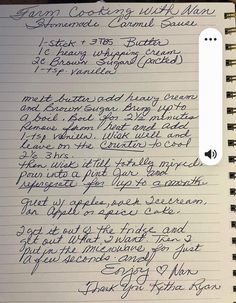 Farm Cooking With Nan
Homemade Carmel Sauce
1-stick + 3 TBS Butter
1 C Heavy Whipping Cream
2 C Brown Sugar (packed)
1-tsp Vanilla
melt butter add heavy cream
and Brown Sugar Bring up to
a boil. Boil for 2½ minutes
Remove from heat and Add
1 tsp Vanilla. Wisk well and
leave on the Counter to Cool
3 hrs.
then Wisk it till totally mixed
pour into a pint Jar and
refrigerate for up to a month.
Great w/ apples, over Icecream,
on Apple or spice Cake.
I get it out of the fridge and
get out What I Want then I
put in the Microwave for Just
a few seconds and
Enjoy ♡ Nan
Thank You Retha Ryan